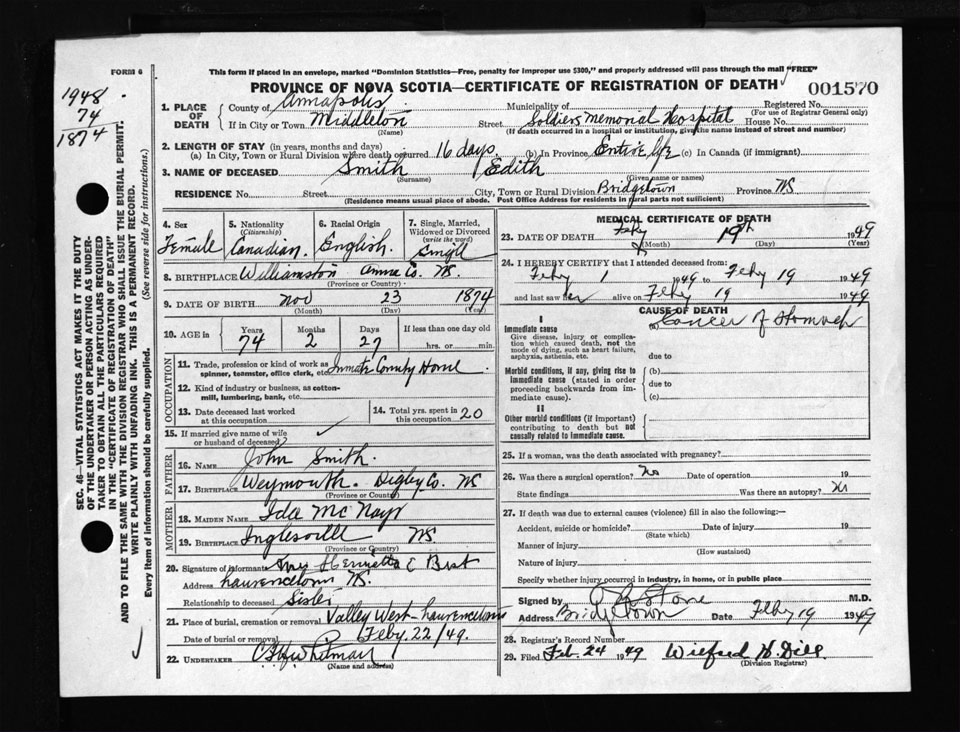 FORM 6
This form if placed in an envelope, marked "Dominion Statistics—Free, penalty for improper use $300," and properly addressed will pass through the mail "FREE"
PROVINCE OF NOVA SCOTIA—CERTIFICATE OF REGISTRATION OF DEATH
001570
1948
74
1874
1. PLACE OF DEATH
County of Annapolis
Municipality of
Registered No.
(For use of Registrar General only)
If in City or Town Middleton
(Name)
Street Soldiers Memorial Hospital House No.
(If death occurred in a hospital or institution, give the name instead of street and number)
2. LENGTH OF STAY (in years, months and days)
(a) In City, Town or Rural Division where death occurred 16 days (b) In Province Entire life (c) In Canada (if immigrant)
3. NAME OF DECEASED Smith Edith
(Surname) (Given name or names)
RESIDENCE No. Street City, Town or Rural Division Bridgetown Province NS
(Residence means usual place of abode. Post Office Address for residents in rural parts not sufficient)
4. Sex Female
5. Nationality (Citizenship) Canadian
6. Racial Origin English
7. Single, Married, Widowed or Divorced (write the word) Singll
8. BIRTHPLACE Williamston Anna Co. NS.
(Province or Country)
9. DATE OF BIRTH Nov 23 1874
(Month) (Day) (Year)
10. AGE in Years Months Days If less than one day old
74 2 27 hrs. or min.
OCCUPATION
11. Trade, profession or kind of work as spinner, teamster, office clerk, etc. Inmate County Home
12. Kind of industry or business, as cotton-mill, lumbering, bank, etc.
13. Date deceased last worked at this occupation
14. Total yrs. spent in this occupation 20
15. If married give name of wife or husband of deceased
FATHER
16. Name John Smith.
17. Birthplace Weymouth. Digby Co. NS
(Province or Country)
MOTHER
18. Maiden Name Ida McNayr
19. Birthplace Inglesvill NS.
(Province or Country)
20. Signature of informant Mrs Henrietta E Best
Address Lawrencetown NS.
Relationship to deceased Sister
21. Place of burial, cremation or removal Valley West-Lawrencetown
Date of burial or removal Feby. 22/49.
22. UNDERTAKER Whitman
(Name and address)
MEDICAL CERTIFICATE OF DEATH
23. DATE OF DEATH Feby 19th 1949
(Month) (Day) (Year)
24. I HEREBY CERTIFY that I attended deceased from:
Feby 1 1949 to Feby 19 1949
and last saw her alive on Feby 19 1949
CAUSE OF DEATH
I
Immediate cause
Give disease, injury or complication which caused death, not the mode of dying, such as heart failure, asphyxia, asthenia, etc.
Cancer of Stomach
due to
Morbid conditions, if any, giving rise to immediate cause (stated in order proceeding backwards from immediate cause).
(b)
due to
(c)
II
Other morbid conditions (if important) contributing to death but not causally related to immediate cause.
25. If a woman, was the death associated with pregnancy?
26. Was there a surgical operation? No Date of operation 19
State findings Was there an autopsy? No
27. If death was due to external causes (violence) fill in also the following:—
Accident, suicide or homicide? Date of injury 19
(State which)
Manner of injury
(How sustained)
Nature of injury
Specify whether injury occurred in industry, in home, or in public place
Signed by Stone M.D.
Address Bridgetown Date Feby 19 1949
28. Registrar's Record Number
29. Filed Feb. 24 1949 Wilfred H. Dill.
(Division Registrar)
SEC. 46—VITAL STATISTICS ACT MAKES IT THE DUTY
OF THE UNDERTAKER OR PERSON ACTING AS UNDER-
TAKER TO OBTAIN ALL THE PARTICULARS REQUIRED
IN THE "CERTIFICATE OF REGISTRATION OF DEATH"
AND TO FILE THE SAME WITH THE DIVISION REGISTRAR WHO SHALL ISSUE THE BURIAL PERMIT.
WRITE PLAINLY WITH UNFADING INK. THIS IS A PERMANENT RECORD.
Every item of information should be carefully supplied. (See reverse side for instructions.)